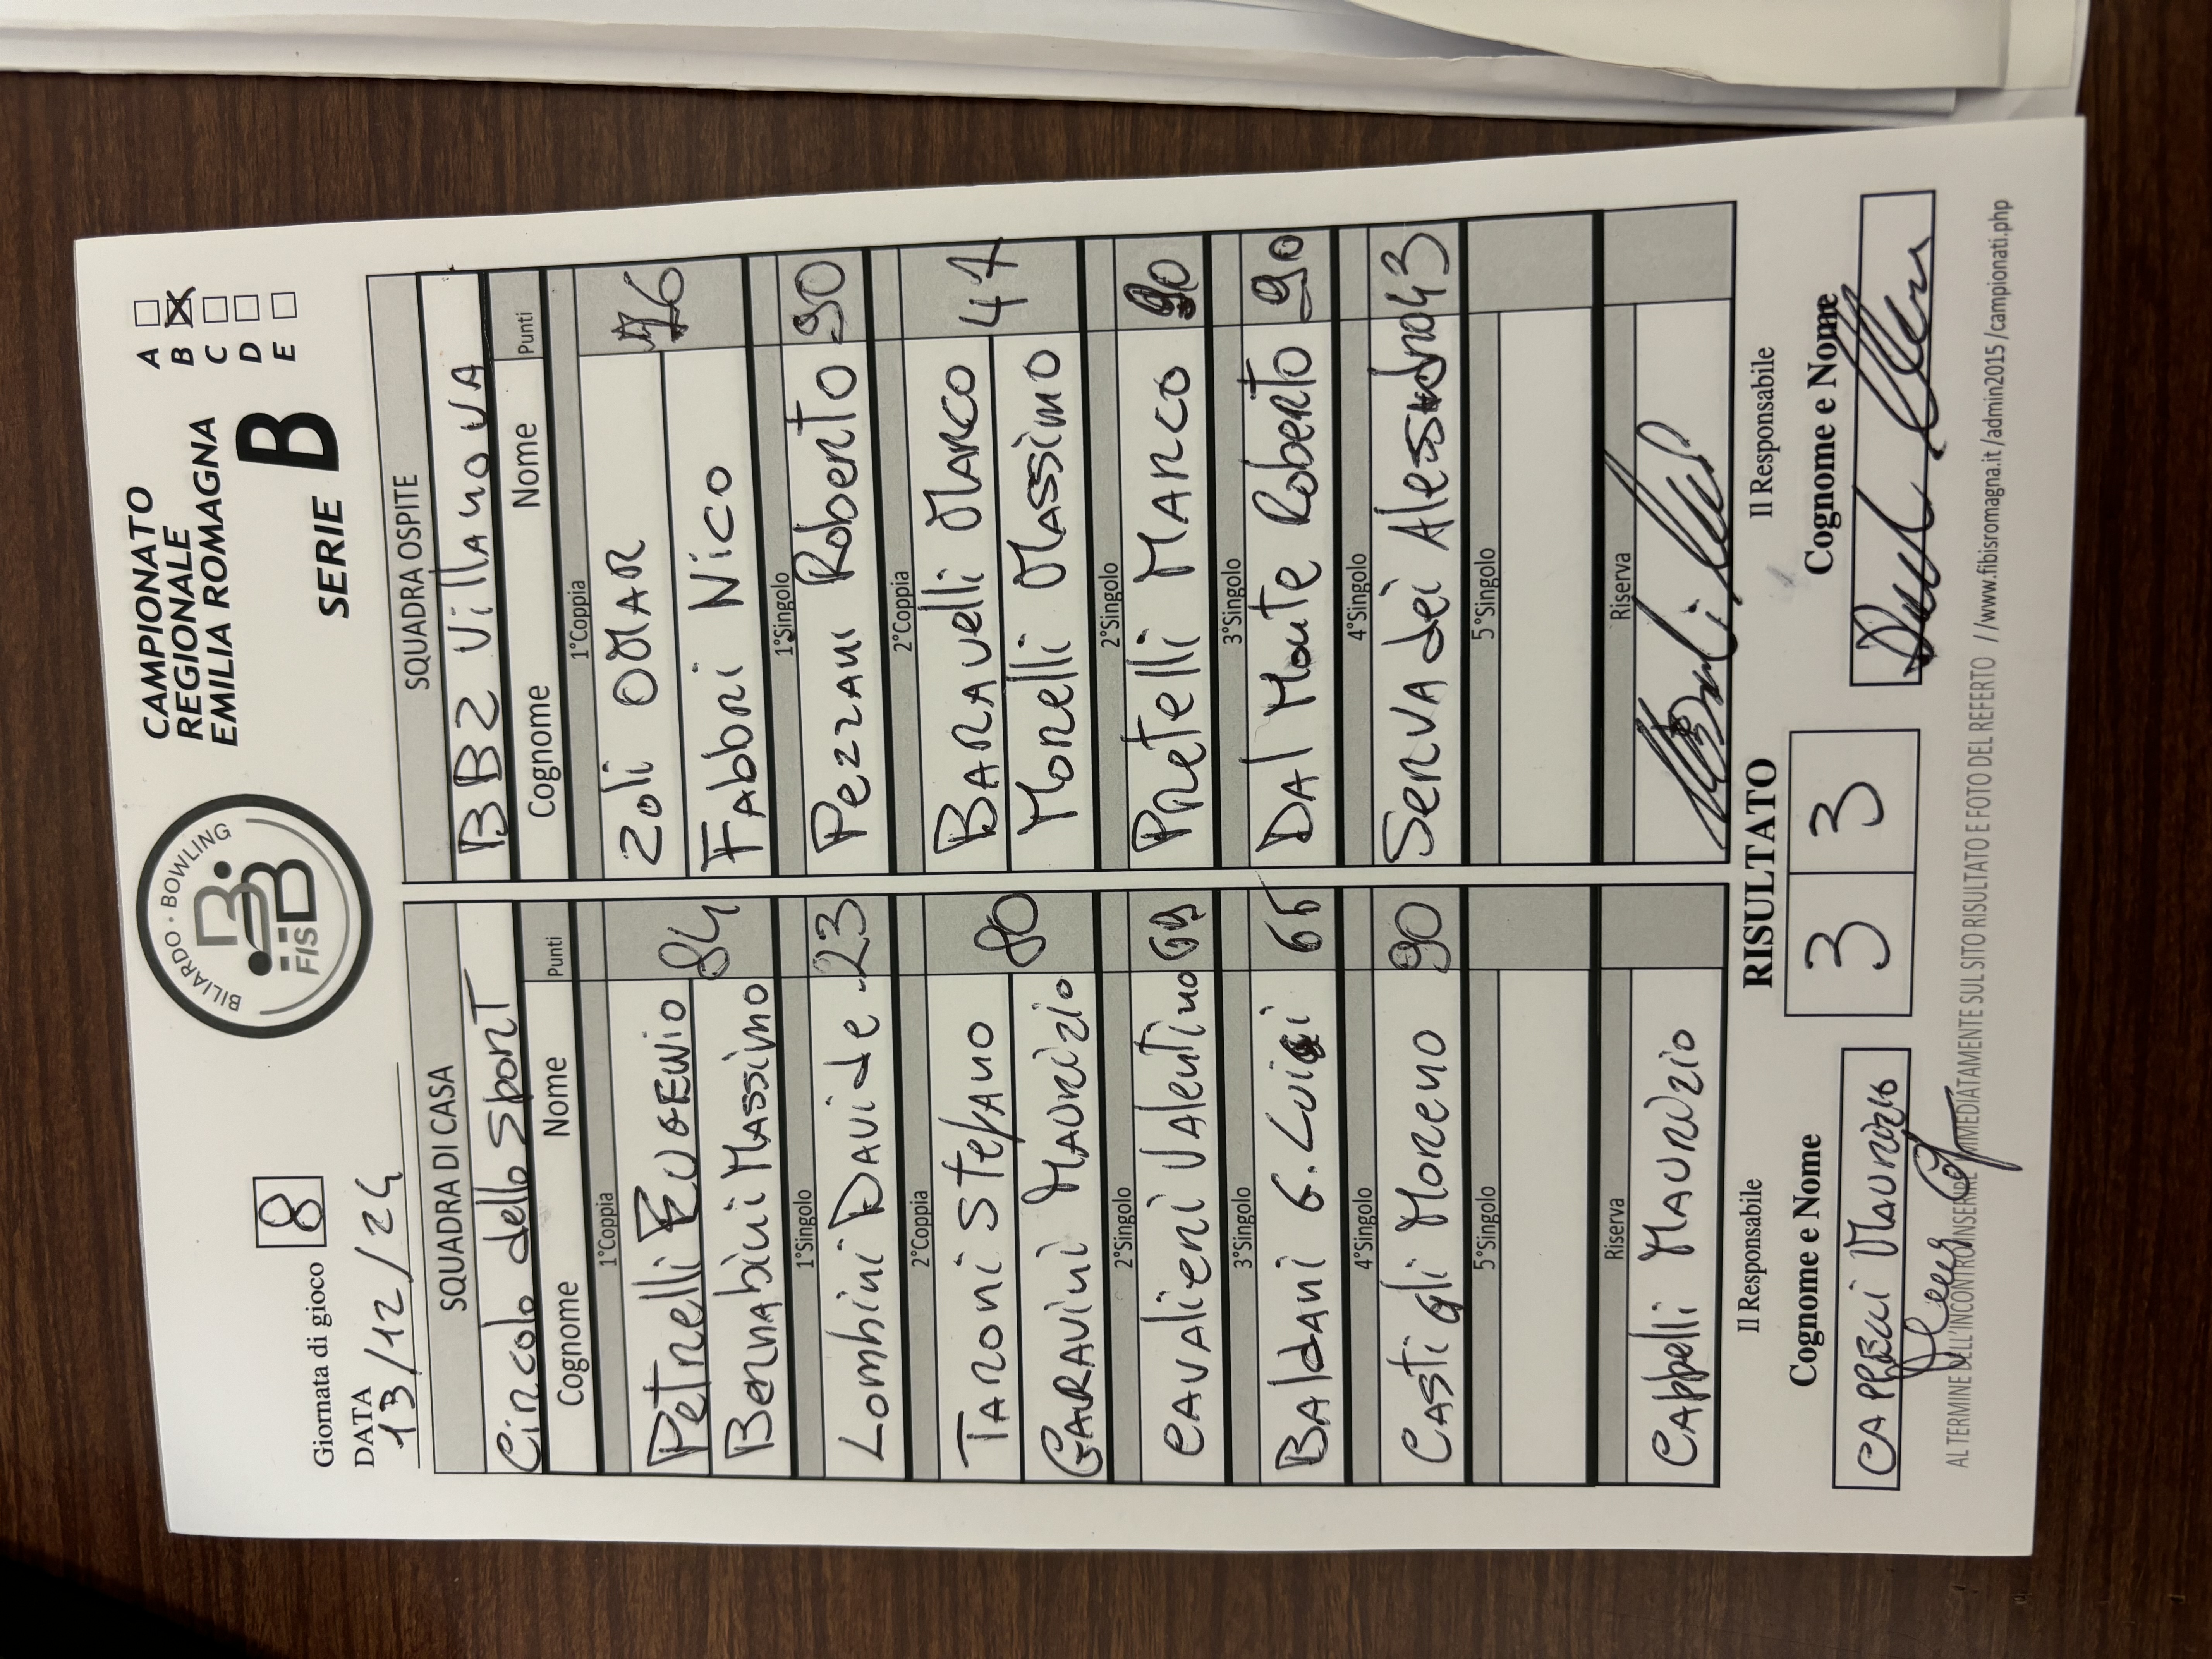 Giornata di gioco 8
DATA
13/12/24
BILIARDO · BOWLING
FISBB
CAMPIONATO
REGIONALE
EMILIA ROMAGNA
SERIE B
A
B
C
D
E
SQUADRA DI CASA
Circolo dello Sport
Cognome Nome Punti
1°Coppia
Petrelli EUGENIO
Bernabini Massimo 84
1°Singolo
Lombini Davide 23
2°Coppia
Taroni Stefano
Garavini Maurizio 80
2°Singolo
Cavalieri Valentino 69
3°Singolo
Baldani G. Luigi 65
4°Singolo
Castigli Moreno 90
5°Singolo
Riserva
Cappelli Maurizio
SQUADRA OSPITE
BB2 Villanova
Cognome Nome Punti
1°Coppia
Zoli OMAR
Fabbri Nico 76
1°Singolo
Pezzani Roberto 90
2°Coppia
Baravelli Marco
Morelli Massimo 47
2°Singolo
Pretelli Marco 90
3°Singolo
Dal Monte Roberto 90
4°Singolo
Servadei Alessandro 43
5°Singolo
Riserva
Il Responsabile
Cognome e Nome
CAPPELLI Maurizio
RISULTATO
3 3
Il Responsabile
Cognome e Nome
AL TERMINE DELL'INCONTRO INSERIRE IMMEDIATAMENTE SUL SITO RISULTATO E FOTO DEL REFERTO //www.fibisromagna.it/admin2015/campionati.php